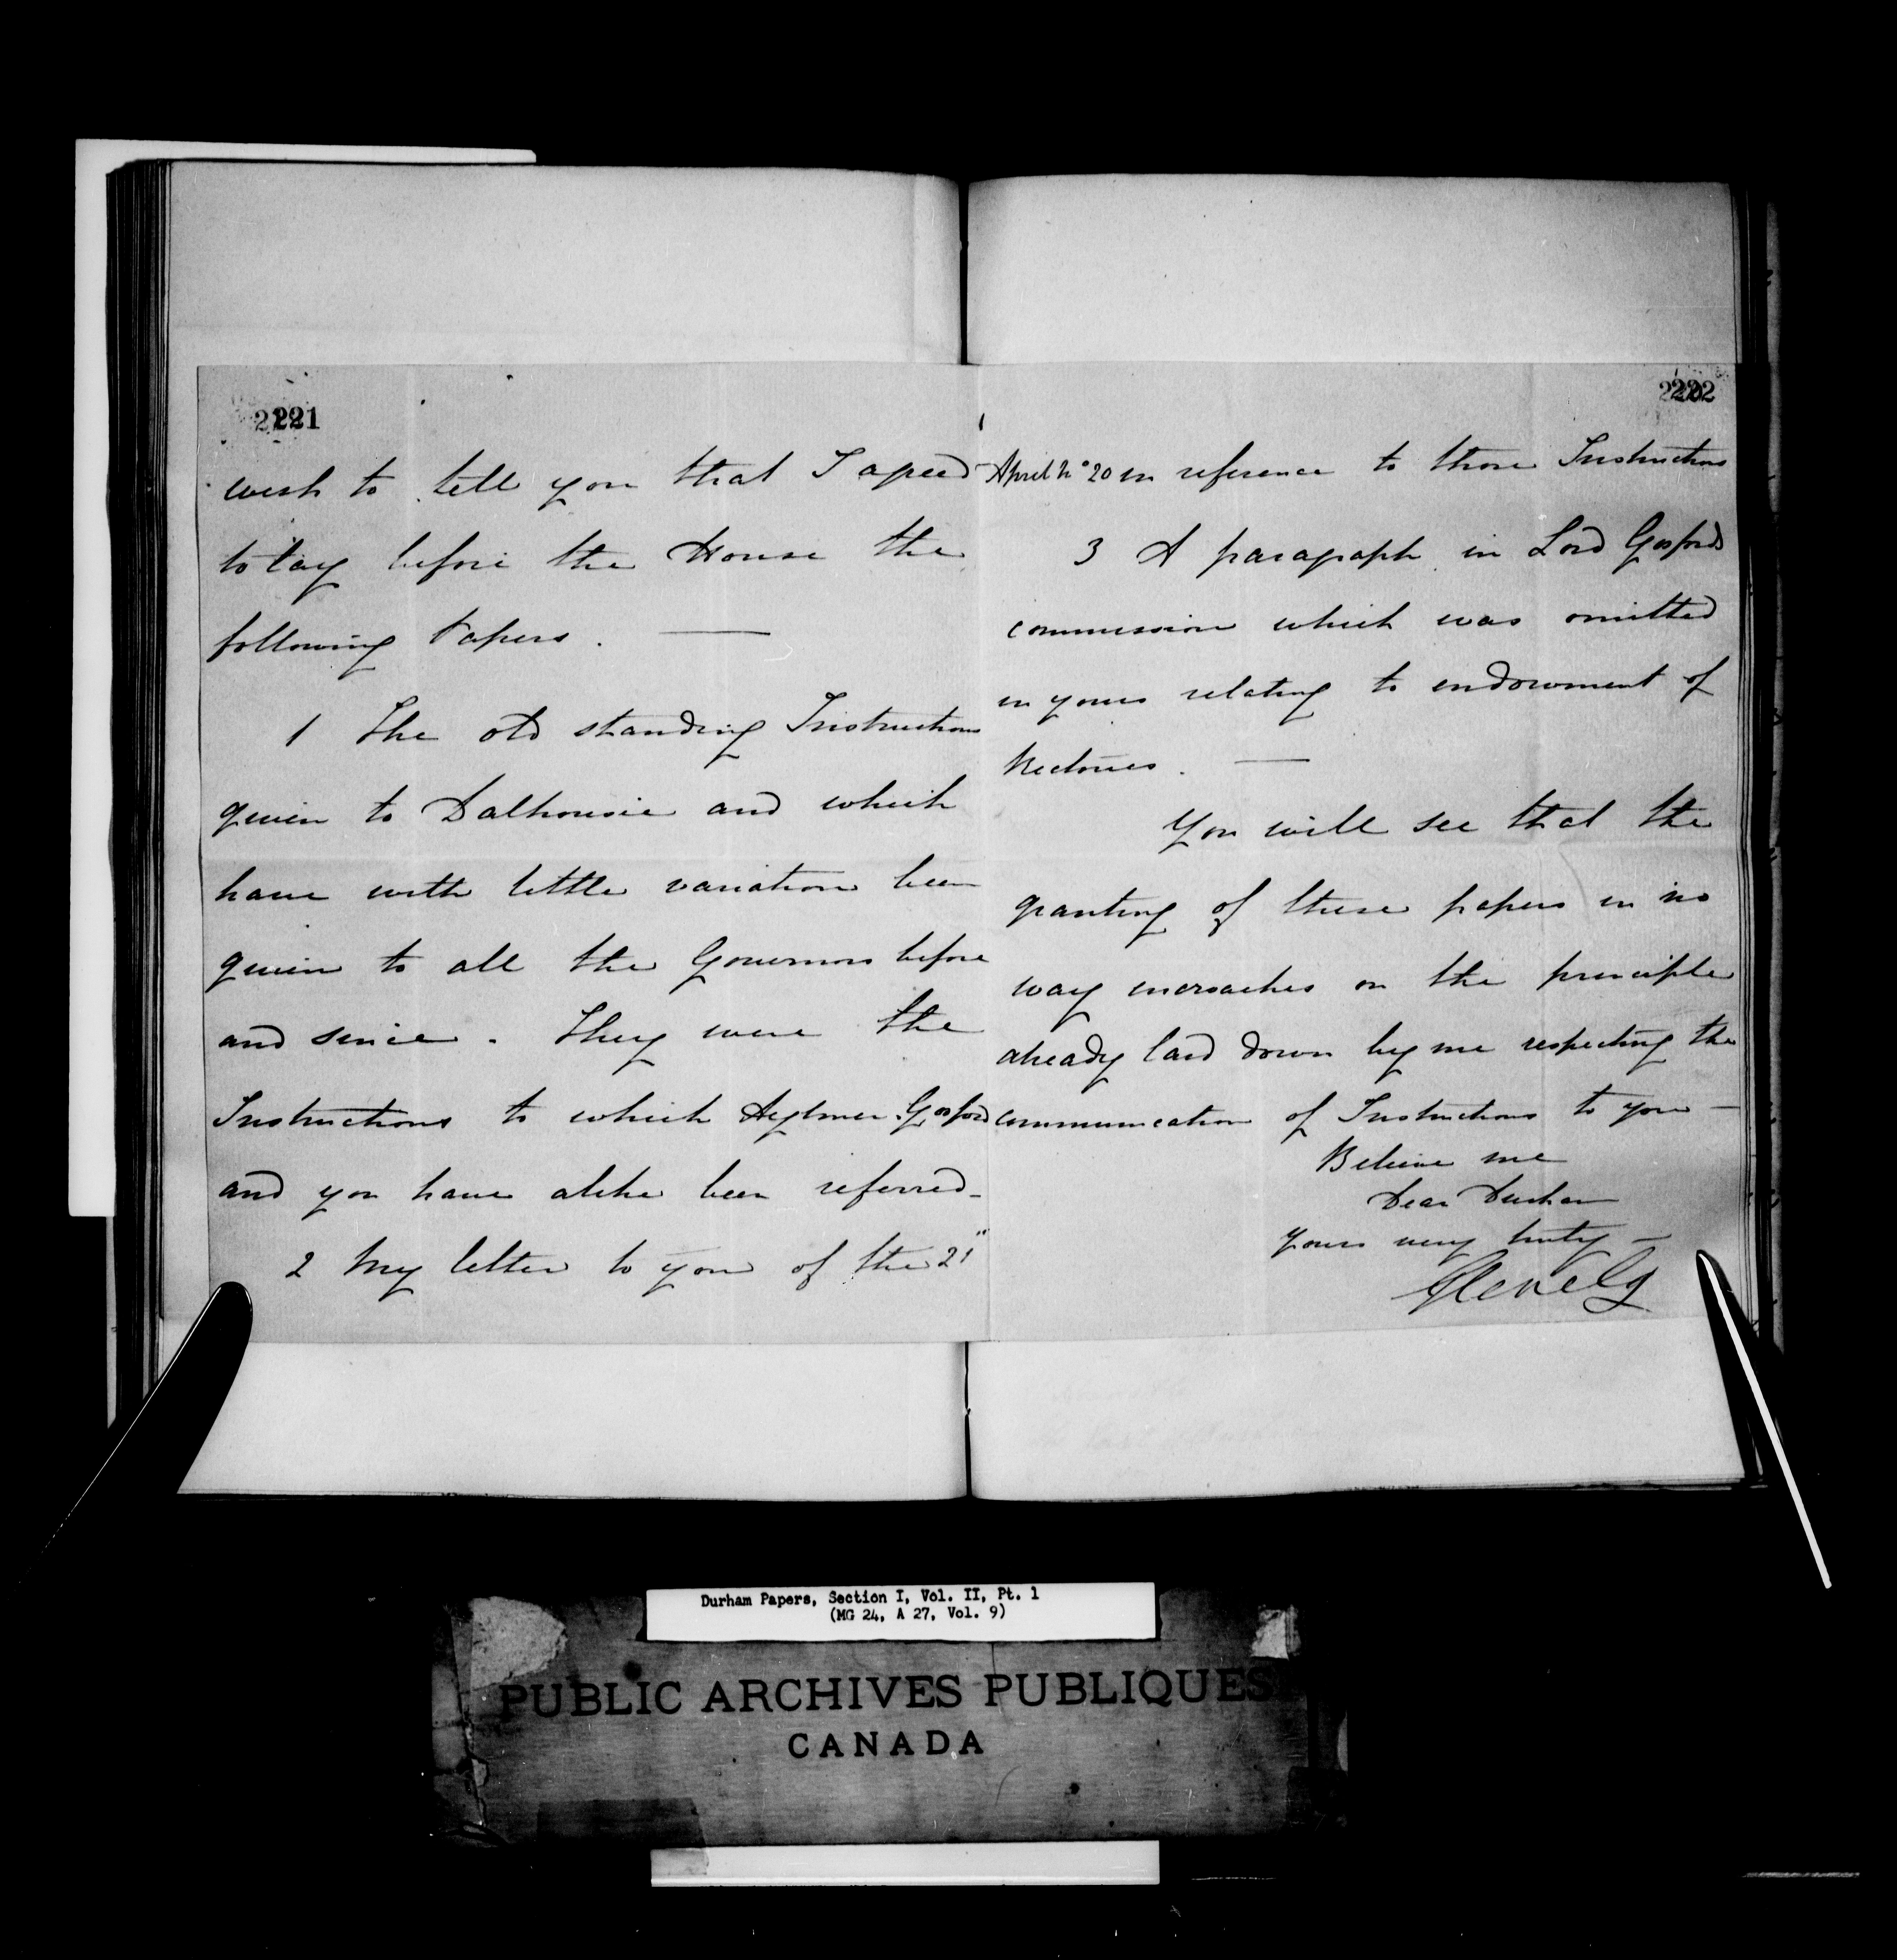 221
wish to tell you that I agreed
to lay before the House the
following Papers. —
1 The old standing Instructions
given to Dalhousie and which
have with little variation been
given to all the Governors before
and since. They were the
Instructions to which Aylmer. Gosford
and you have alike been referred_
2 My letter to you of the 21"
222
April No 20 in reference to those Instructions
3 A paragraph in Lord Gosfords
commission which was omitted
in yours relating to endowment of
Rectories. —
You will see that the
granting of these papers in no
way encroaches on the principle
already laid down by me respecting the
communication of Instructions to you —
Believe me
Dear Durham
Yours very truly —
Glenelg
Durham Papers, Section I, Vol. II, Pt. 1
(MG 24, A 27, Vol. 9)
PUBLIC ARCHIVES PUBLIQUES
CANADA